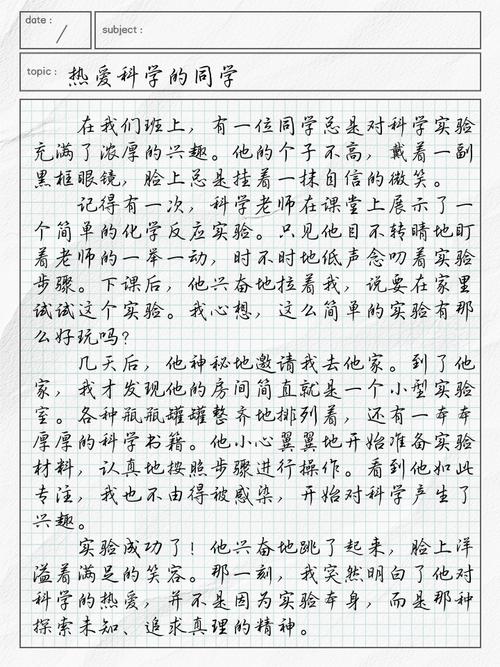 date :
subject :
topic : 热爱科学的同学
在我们班上，有一位同学总是对科学实验
充满了浓厚的兴趣。他的个子不高，戴着一副
黑框眼镜，脸上总是挂着一抹自信的微笑。
记得有一次，科学老师在课堂上展示了一
个简单的化学反应实验。只见他目不转睛地盯
着老师的一举一动，时不时地低声念叨着实验
步骤。下课后，他兴奋地拉着我，说要在家里
试试这个实验。我心想，这么简单的实验有那
么好玩吗？
几天后，他神秘地邀请我去他家。到了他
家，我才发现他的房间简直就是一个小型实验
室。各种瓶瓶罐罐整齐地排列着，还有一本本
厚厚的科学书籍。他小心翼翼地开始准备实验
材料，认真地按照步骤进行操作。看到他如此
专注，我也不由得被感染，开始对科学产生了
兴趣。
实验成功了！他兴奋地跳了起来，脸上洋
溢着满足的笑容。那一刻，我突然明白了他对
科学的热爱，并不是因为实验本身，而是那种
探索未知、追求真理的精神。